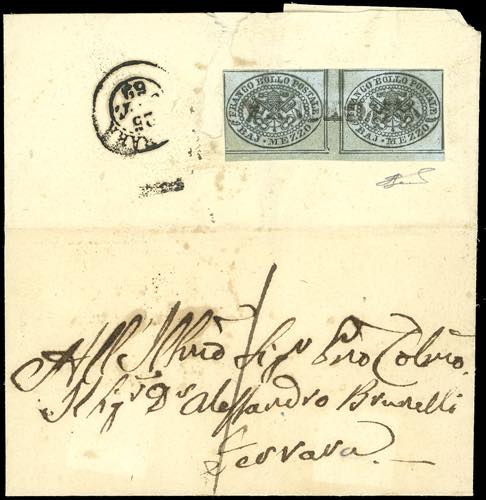 FRANCO BOLLO POSTALE
BAJ. MEZZO
FRANCO BOLLO POSTALE
BAJ. MEZZO
25
All' Illmo Sigr Prõ Colmo
Il Sigr Dr Alessandro Brunelli
Ferrara